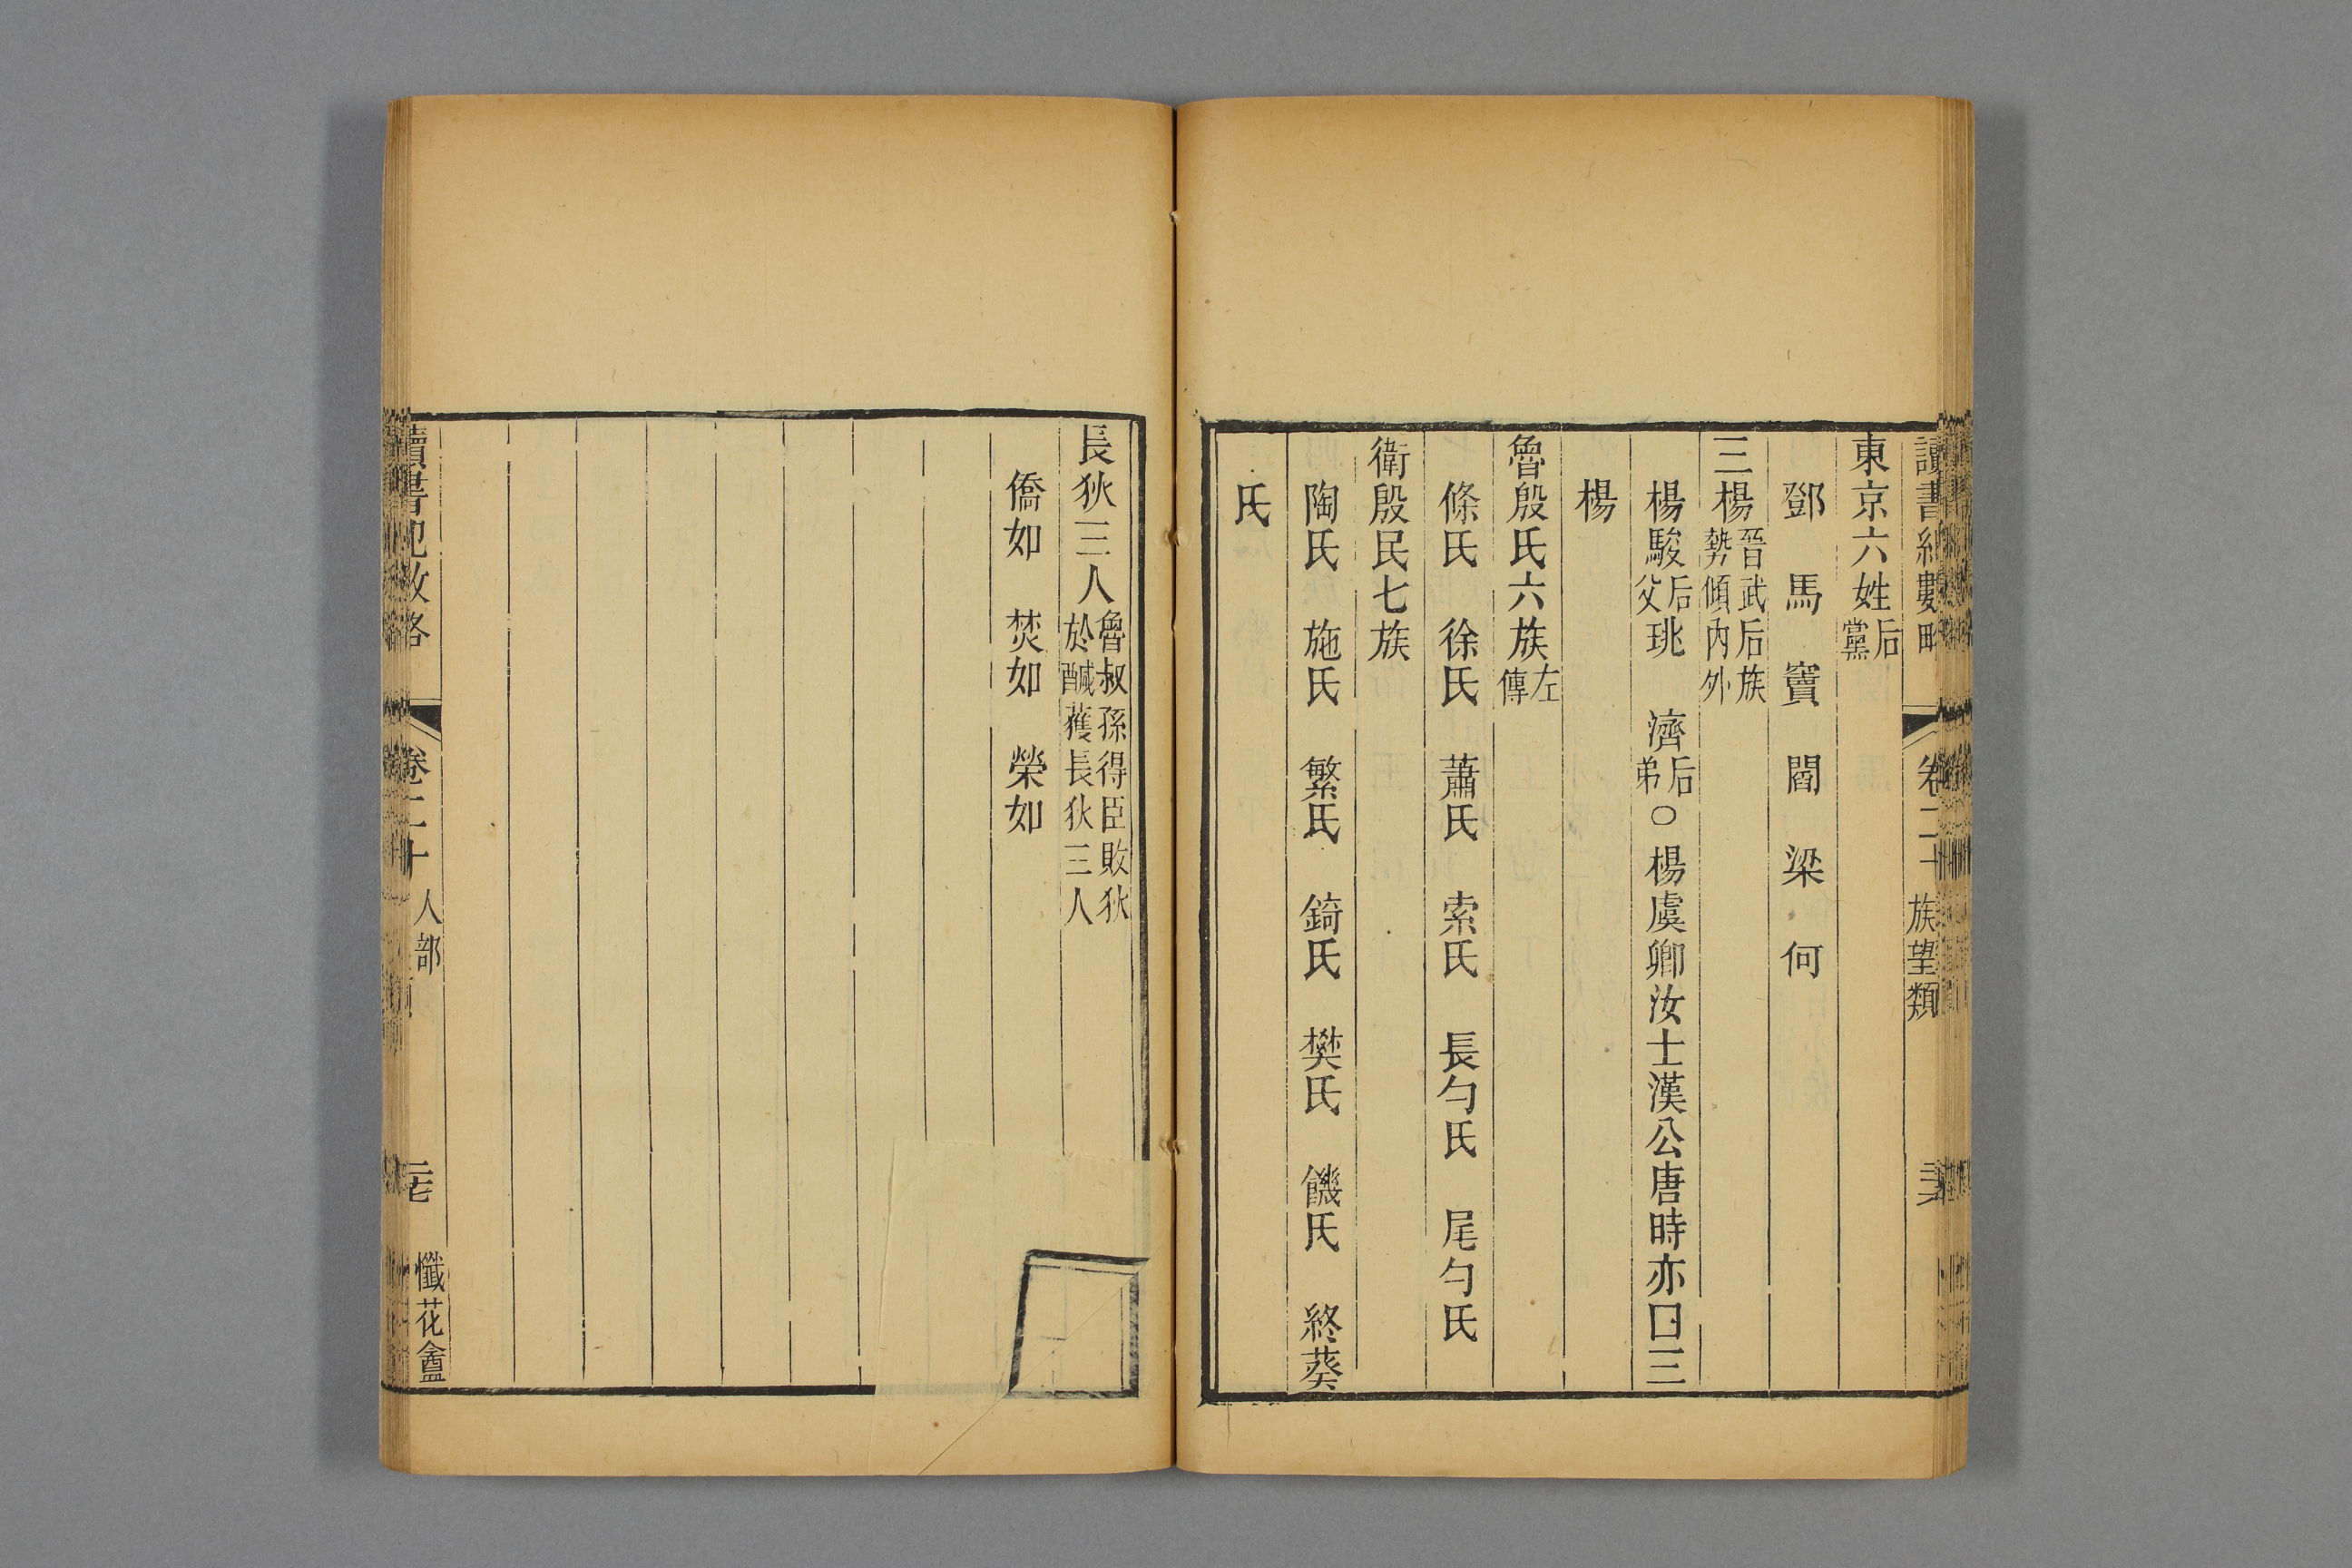 讀書紀數略 卷二十 族望類
東京六姓后黨
鄧 馬 竇 閻 梁 何
三楊晉武后族勢傾內外
楊駿后父 珧 濟后弟○楊虞卿汝士漢公唐時亦曰三
楊
魯殷氏六族左傳
條氏 徐氏 蕭氏 索氏 長勺氏 尾勺氏
衛殷民七族
陶氏 施氏 繁氏 錡氏 樊氏 饑氏 終葵
氏
長狄三人魯叔孫得臣敗狄於鹹獲長狄三人
僑如 焚如 榮如
讀書紀數略 卷二十 人部 二七 懺花盦